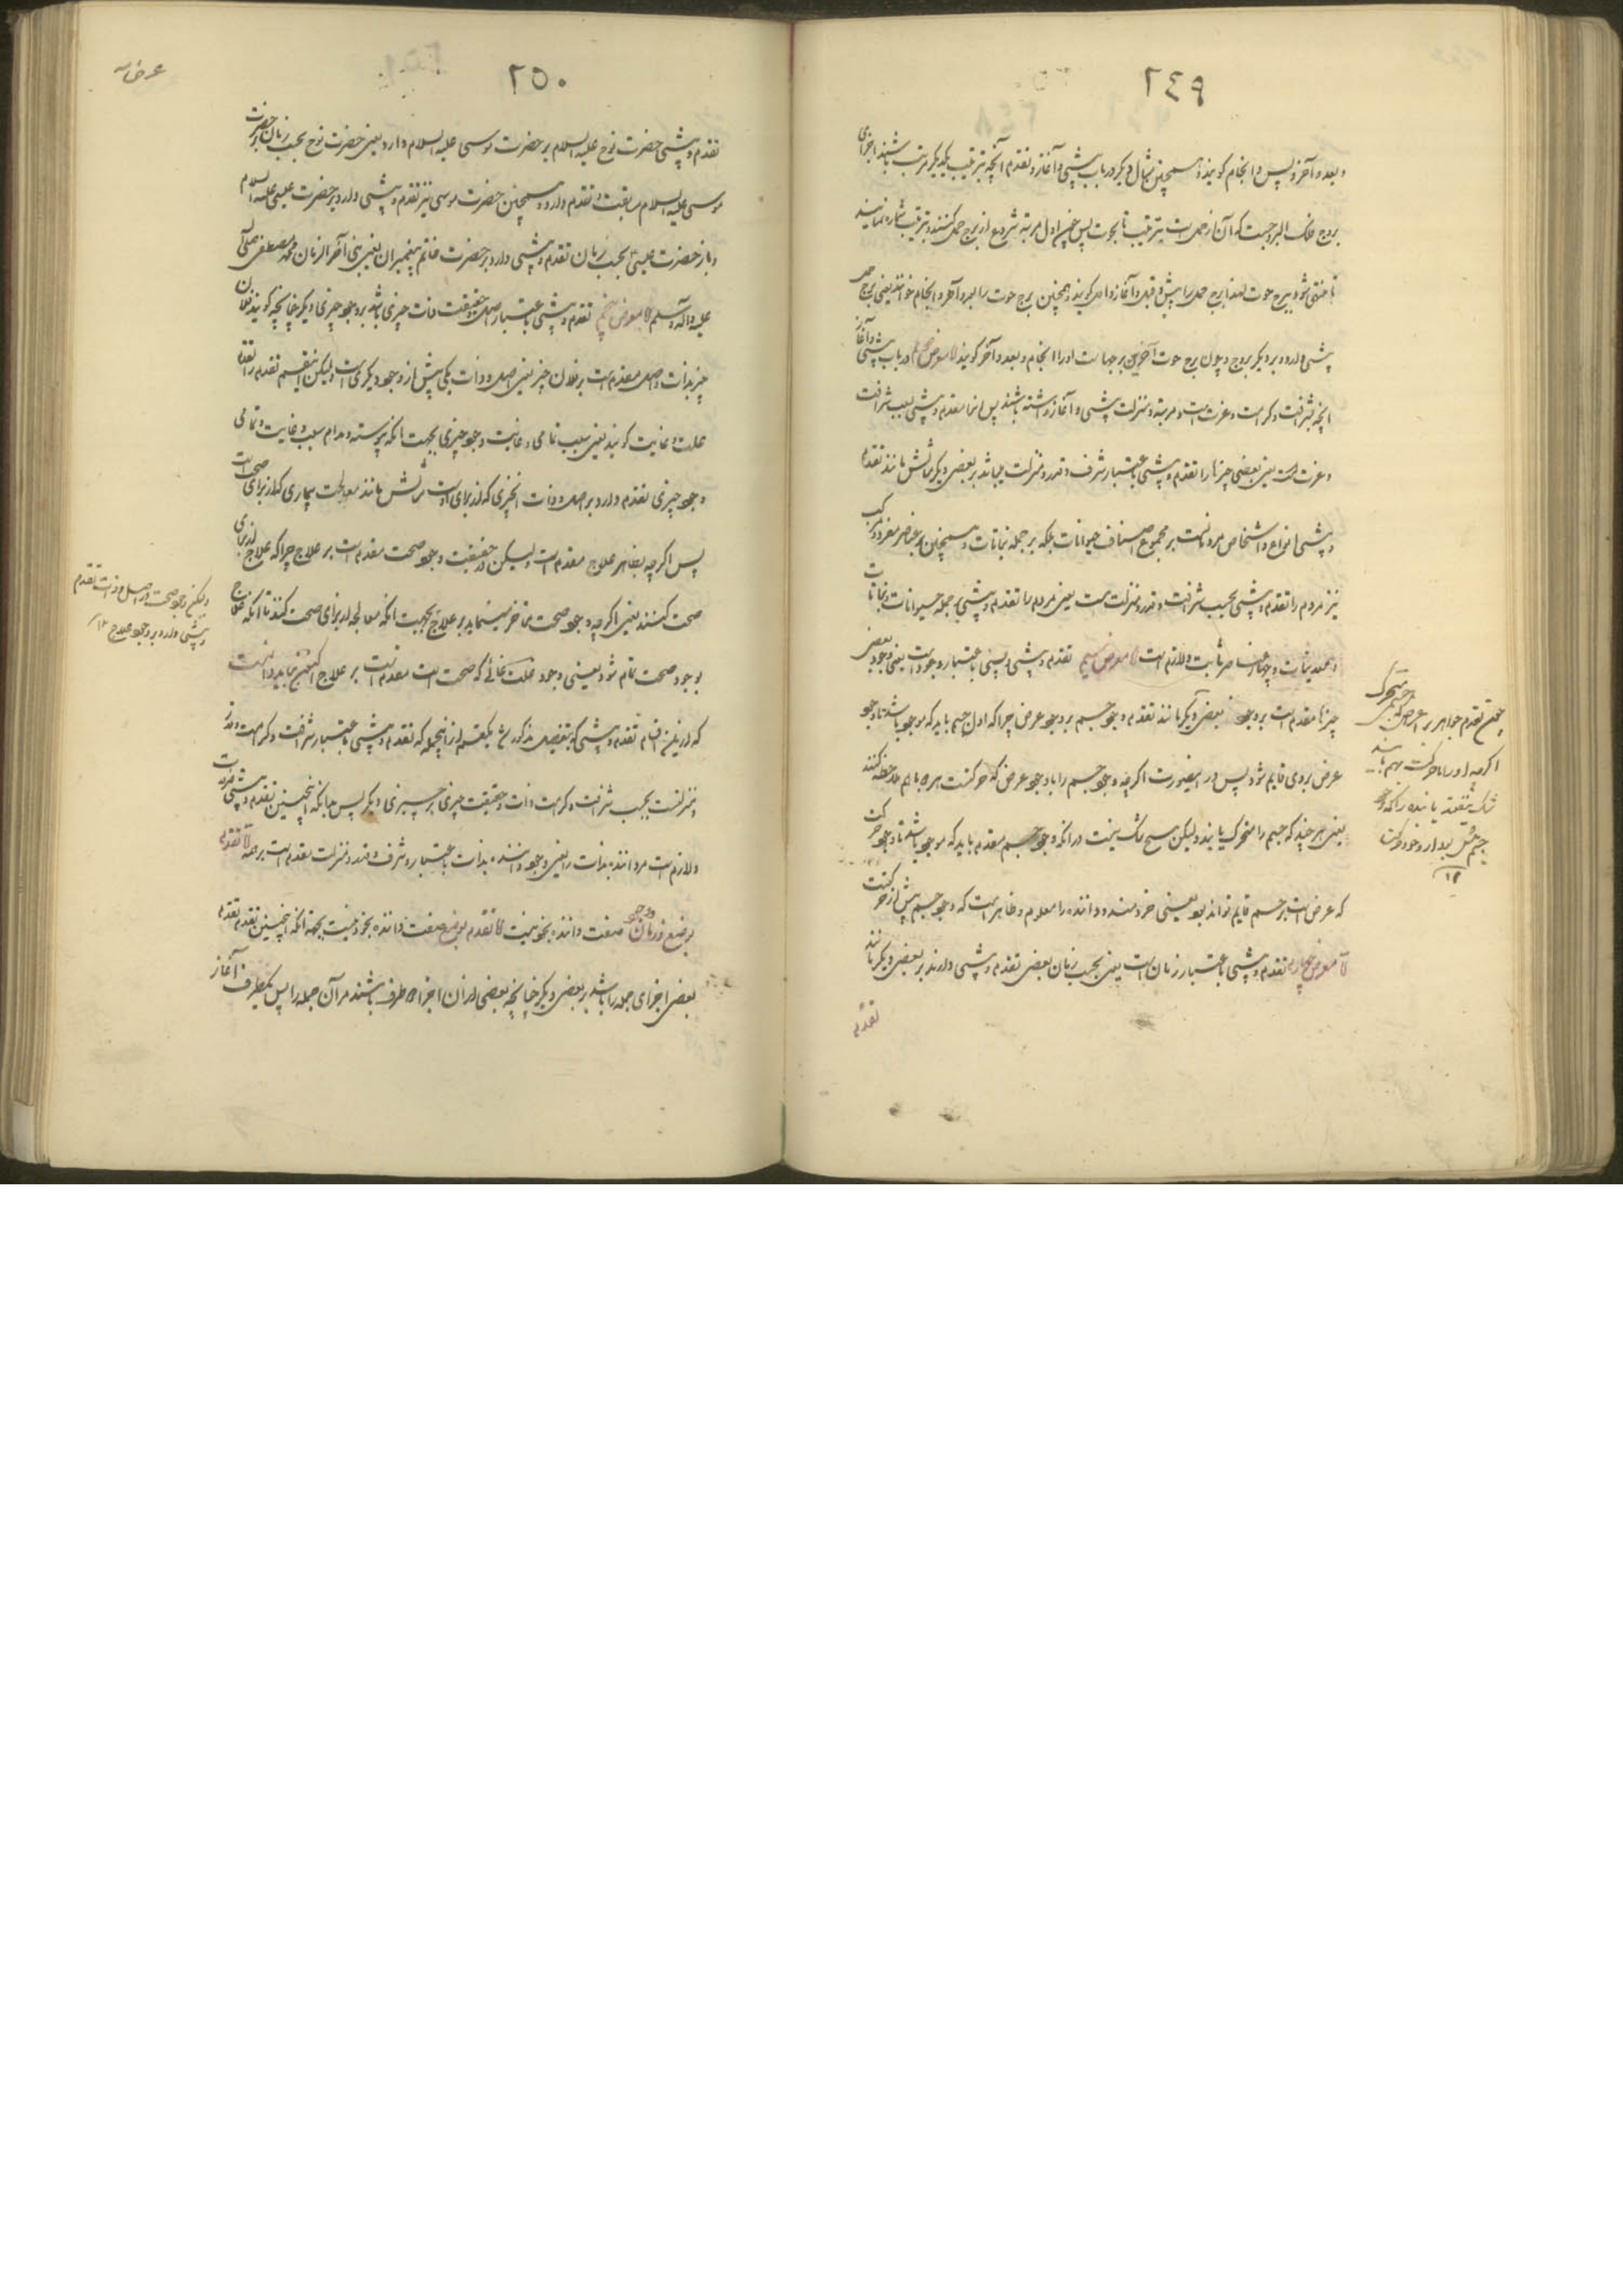 ٢٤٩
و بعد و آخر و پس و انجام گویند و همچنین مثال دیگر در باب پیشی و آغاز و تقدم آنچه بترتیب یکدیگر مرتب باشند اجزای
بروج فلک البروجست که آن از حمل است بترتیب تا بحوت پس چون اول مرتبه شروع از برج حمل کنند و بترتیب شماره نمایند
تا منتهی شود ببرج حوت لهذا برج حمل را پیش و قبل و آغاز و اول گویند و همچنین برج حوت را بعد و آخر و انجام خوانند یعنی برج حمل
پیشی دارد بر دیگر بروج و چون برج حوت آخرین برجهاست او را انجام و بعد و آخر گویند لا معرض دوم در باب پیشی و آغاز
آنچه بشرافت و کرامت و عزت است و مرتبه و منزلت پیشی و آغاز داشته باشند پس آنها مقدم و پیشی بسبب شرافت
و عزت است یعنی بعضی چیزها را تقدم و پیشی باعتبار شرف و قدر و منزلت میباشد بر بعضی دیگر مثالش مانند تقدم
و پیشی انواع و اشخاص مردمانست بر مجموع اصناف حیوانات بلکه بر جمله نباتات و همچنین بر عناصر مفرد و مرکب
نیز مردم را تقدم و پیشی بحسب شرافت و قدر و منزلت هست یعنی مردم را تقدم و پیشی بر جمله حیوانات و نباتات
و جمادات و چهار عناصر ثابت و لازم است لا معرض سیم تقدم و پیشی و پسی باعتبار وجود است یعنی وجود بعضی
چیزها مقدم است بر وجود بعضی دیگر مانند تقدم وجود جسم بر وجود عرض چرا که اول جسم باید که موجود باشد تا وجود
عرض بر وی قایم شود پس در اینصورت اگرچه وجود جسم را با وجود عرض که حرکتست همراه باهم ملاحظه کنند
یعنی هر چند که جسم را متحرک یابند ولیکن هیچ شک نیست در آنکه وجود جسم مقدم باید که موجود باشد تا وجود حرکت
که عرض است بر جسم قایم تواند بود یعنی خردمند و داننده را معلوم و ظاهر است که وجود جسم پیش از حرکتست
لا معرض چهارم تقدم و پیشی باعتبار زمان است یعنی بحسب زمان بعضی تقدم و پیشی دارند بر بعضی دیگر مانند
تقدم
همچون تقدم جواهر بر اعراض که جسم متحرک
اگرچه او را با حرکت بهم باشد
جسم پیش بود از وجود حرکت
١٢
٢٥٠
تقدم و پیشی حضرت نوح علیه السلام بر حضرت موسی علیه السلام دارد یعنی حضرت نوح بحسب زمان بر حضرت
موسی علیه السلام سابقیت و تقدم دارد و همچنین حضرت موسی نیز تقدم و پیشی دارد بر حضرت عیسی علیه السلام
و باز حضرت عیسی بحسب زمان تقدم و پیشی دارد بر حضرت خاتم پیغمبران یعنی نبی آخر الزمان محمد مصطفی صلی الله
علیه و آله و سلم لا معرض پنجم تقدم و پیشی باعتبار اصل و حقیقت ذات چیزی باشد بر وجود چیزی دیگر چنانچه گویند فلان
چیز بذات و اصل مقدم است بر فلان چیز یعنی اصل و ذات یکی پیش از وجود دیگری است ولیکن اینقسم تقدم را تقدم
علت و غایت گویند یعنی سبب تمامی و غایت وجود چیزی بجهت آنکه پیوسته و مدام سبب و غایت و تمامی
وجود چیزی تقدم دارد بر اصل و ذات آنچیزی که از برای اوست مثالش مانند معالجت بیماری که از برای صحت است
پس اگرچه بظاهر علاج مقدم است ولیکن در حقیقت وجود صحت مقدم است بر علاج چرا که علاج از برای
صحت کنند یعنی اگرچه وجود صحت متاخر مینماید بر علاج بجهت آنکه معالجه از برای صحت کنند تا آنکه علاج
بوجود صحت تمام شود یعنی وجود علت غائی که صحت است مقدم است بر علاج اکنون باید دانست
که از این اقسام تقدم و پیشی که بتفصیل مذکور شد یکقسم از اینجمله که تقدم و پیشی باعتبار شرافت و کرامت و قدر
و منزلتست بحسب شرافت و کرامت ذات و حقیقت چیزی بر چیزی دیگر پس بدانکه اینچنین تقدم و پیشی ثابت
و لازم است مر داننده بذات را یعنی وجود داننده بذات باعتبار شرف و قدر و منزلت مقدم است بر همه لا تقدم
بوضع و زمان و وجود صفت داننده بخود نیست لا تقدم بوضع صفت داننده بخود نیست بجهة آنکه اینچنین تقدم تقدم
بعضی اجزای جمله را باشد بر بعضی دیگر چنانچه بعضی از آن اجزاء طرف باشند مر آن جمله را پس یکطرف آغاز
ولیکن وجود صحت در اصل و ذات تقدم
و پیشی دارد بر وجود علاج ١٢